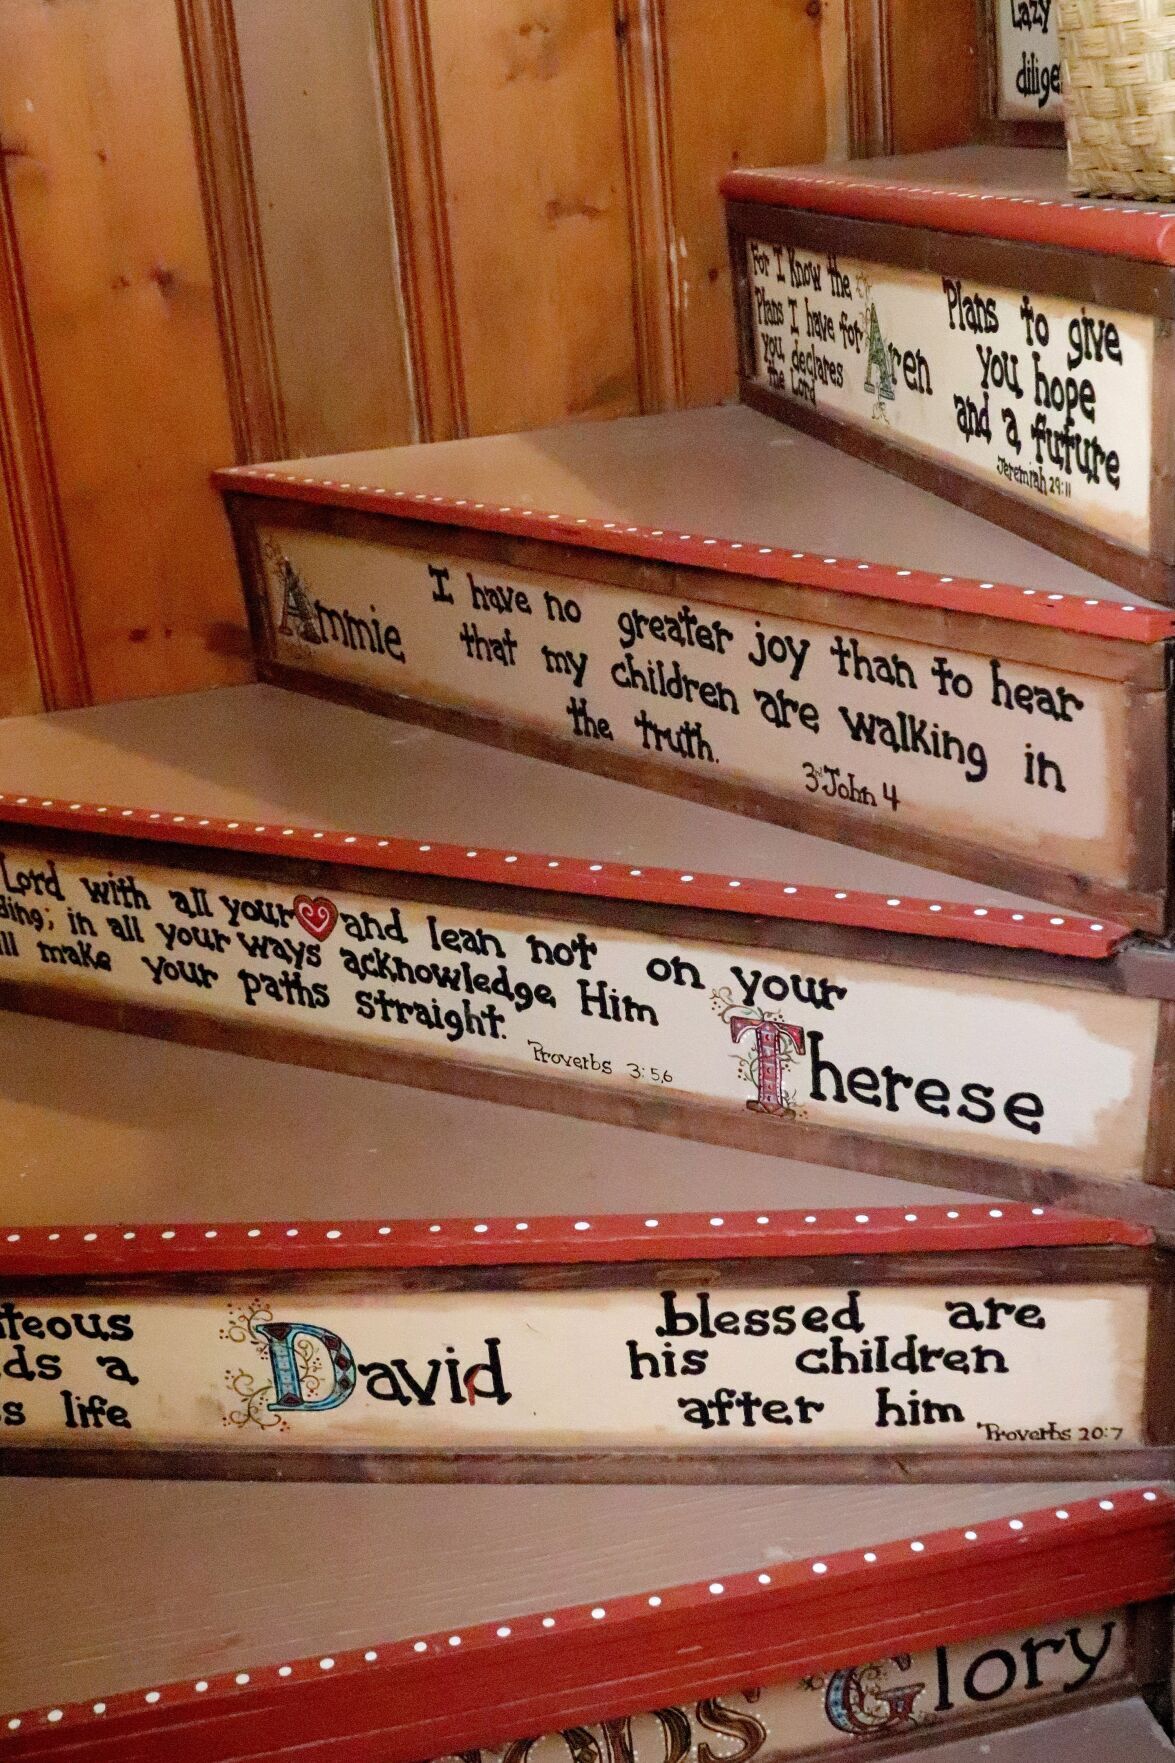 Lazy
For I Know the
Plans I have for
you, declares
the Lord
Aren
Plans to give
you hope
and a future
Jeremiah 29:11
Ammie
I have no greater joy than to hear
that my children are walking in
the truth.
3rd John 4
Lord with all your and lean not on your
in all your ways acknowledge Him
make your paths straight.
Proverbs 3:5,6
Therese
a
life
David
blessed are
his children
after him
Proverbs 20:7
Glory